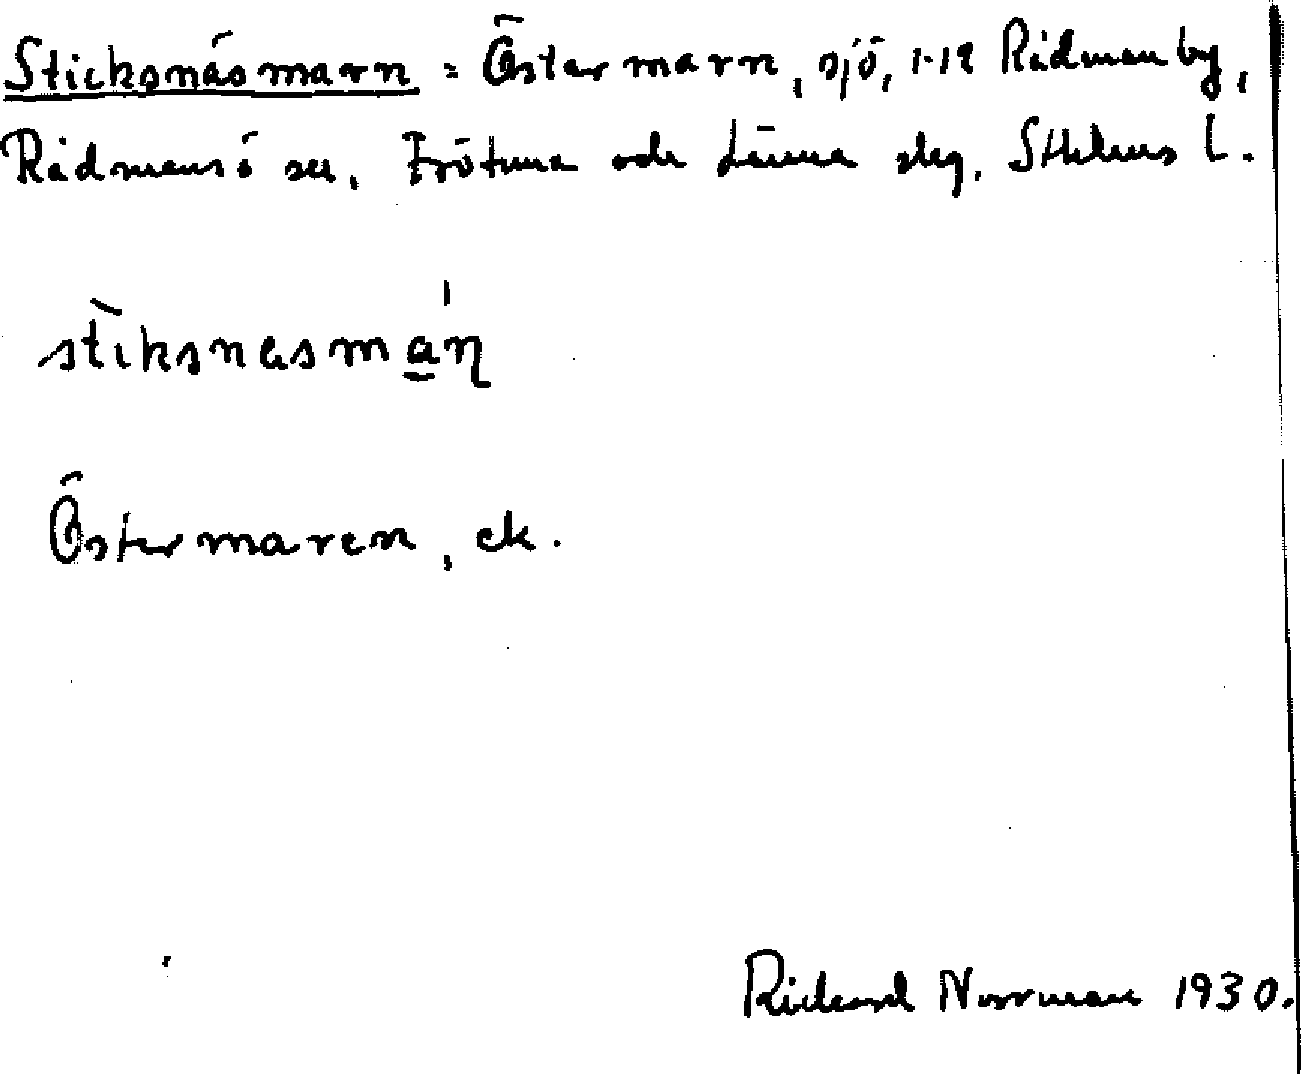 Sticksnäsmarn = Östermarn, sjö, 1-12 Rådmanby,
Rådmansö sn, Frötuna och Länna slg, Sthlms l.
stiksnesmaṇ
Östermaren, ek.
Rickard Norrman 1930.